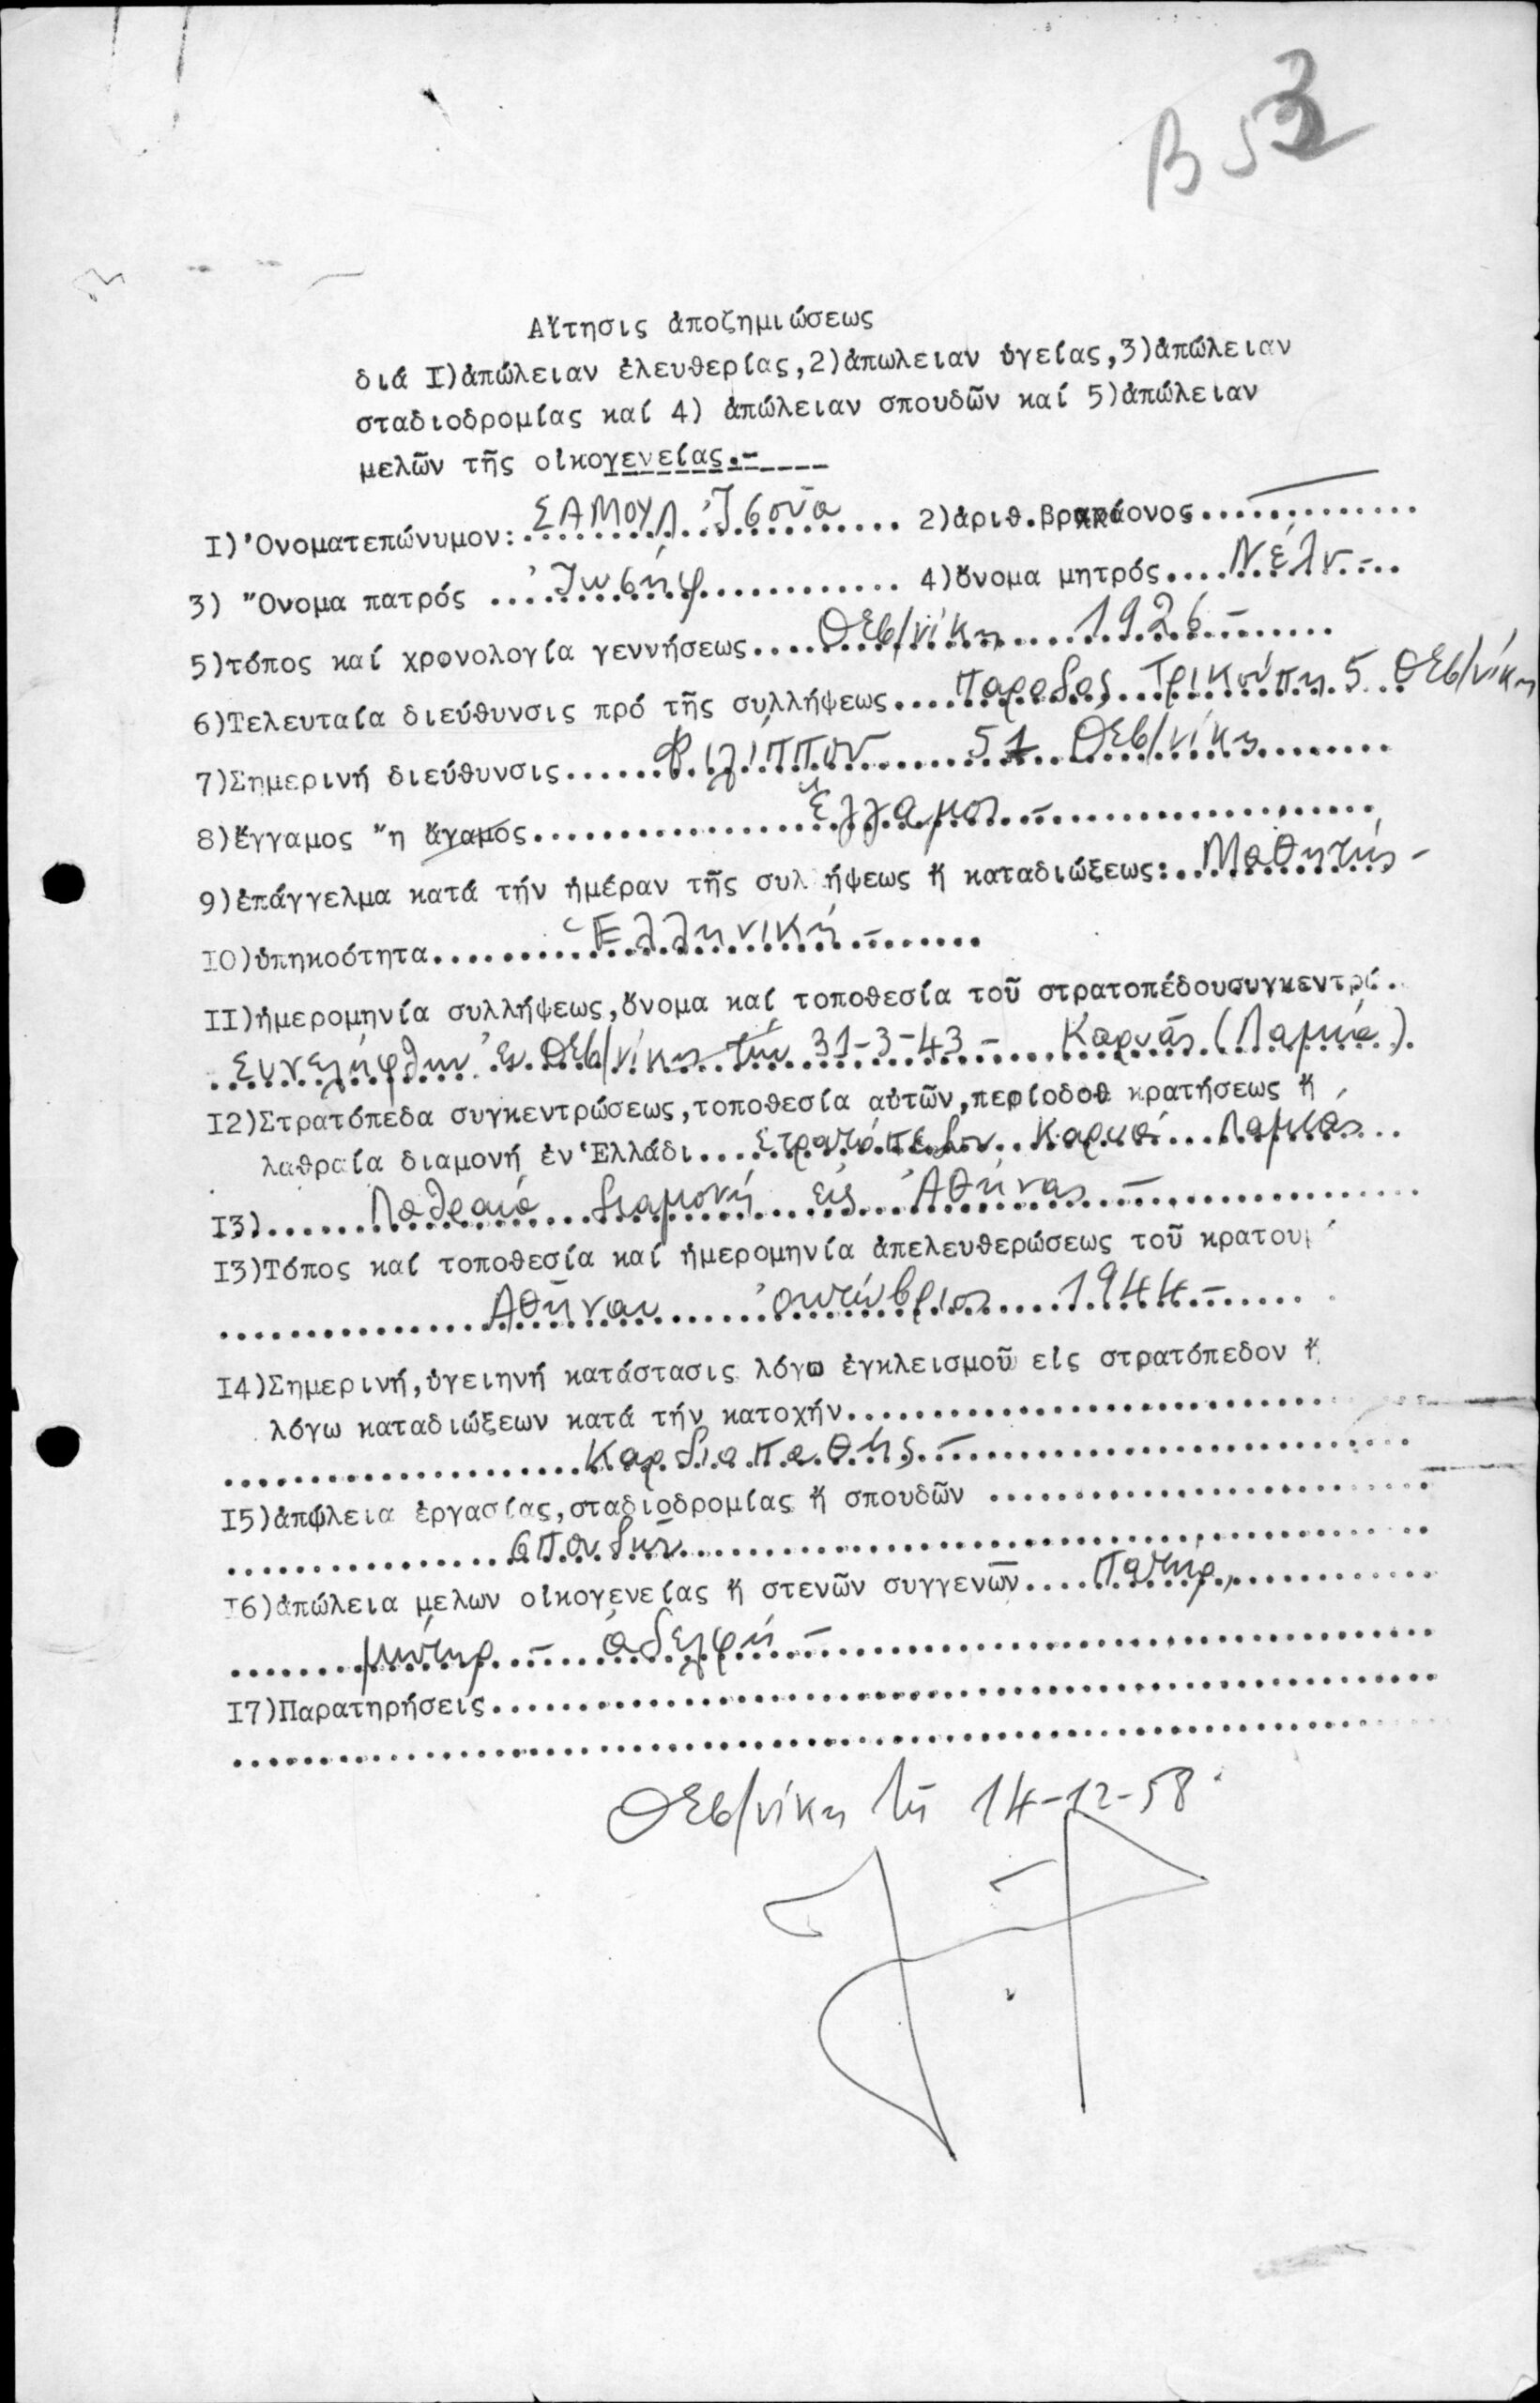 Β 53
Αἴτησις ἀποζημιώσεως
διά Ι)ἀπώλειαν ἐλευθερίας,2)ἀπωλειαν ὑγείας,3)ἀπώλειαν
σταδιοδρομίας καί 4) ἀπώλειαν σπουδῶν καί 5)ἀπώλειαν
μελῶν τῆς οἰκογενείας.-
Ι)Ὀνοματεπώνυμον: ΣΑΜΟΥΛ Ἰσούα 2)ἀριθ.βραχίονος
3) "Ονομα πατρός Ἰωσήφ 4)ὄνομα μητρός Νέλν -
5)τόπος καί χρονολογία γεννήσεως Θεσ/νίκη 1926 -
6)Τελευταία διεύθυνσις πρό τῆς συλλήψεως Παροδος Τρικούπη 5 Θεσ/νίκη
7)Σημερινή διεύθυνσις Φιλίππου 51 Θεσ/νίκη
8)ἔγγαμος "η ἄγαμος Ἔγγαμος -
9)ἐπάγγελμα κατά τήν ἡμέραν τῆς συλλήψεως ἤ καταδιώξεως: Μαθητής -
ΙΟ)ὑπηκοότητα Ἑλληνική -
ΙΙ)ἡμερομηνία συλλήψεως,ὄνομα καί τοποθεσία τοῦ στρατοπέδουσυγκεντρώ.
Συνελήφθην ἐν Θεσ/νίκη τήν 31-3-43 - Καρυάς (Λαμία)
Ι2)Στρατόπεδα συγκεντρώσεως,τοποθεσία αὐτῶν,περίοδοθ κρατήσεως ἤ
λαθραία διαμονή ἐν Ἑλλάδι Στρατόπεδον Καρυά Λαμίας
Ι3) Λαθραία διαμονή εἰς Ἀθήνας -
Ι3)Τόπος καί τοποθεσία καί ἡμερομηνία ἀπελευθερώσεως τοῦ κρατουμ
Αθῆναι ὀκτώβριος 1944 -
Ι4)Σημερινή,ὑγειηνή κατάστασις λόγω ἐγκλεισμοῦ εἰς στρατόπεδον ἤ
λόγω καταδιώξεων κατά τήν κατοχήν
Καρδιοπαθής -
Ι5)ἀπώλεια ἐργασίας,σταδιοδρομίας ἤ σπουδῶν
σπουδῶν
Ι6)ἀπώλεια μελων οἰκογενείας ἤ στενῶν συγγενῶν Πατήρ,
μήτηρ - ἀδελφή -
Ι7)Παρατηρήσεις
Θεσ/νίκη τῇ 14-12-58